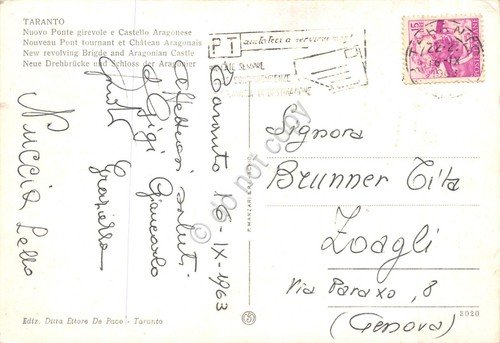 TARANTO
Nuovo Ponte girevole e Castello Aragonese
Nouveau Pont tournant et Château Aragonais
New revolving Brigde and Aragonian Castle
Neue Drehbrücke und Schloss der Aragonier
PT aiutateci a servirvi
Taranto 16-IX-1963
Affettuosi saluti
Gigi Giancarlo
Graziella
Nuccia Lello
Signora
Brunner Tita
Zoagli
Via Paraxo, 8
(Genova)
2020
Ediz. Ditta Ettore De Pace - Taranto
do not copy